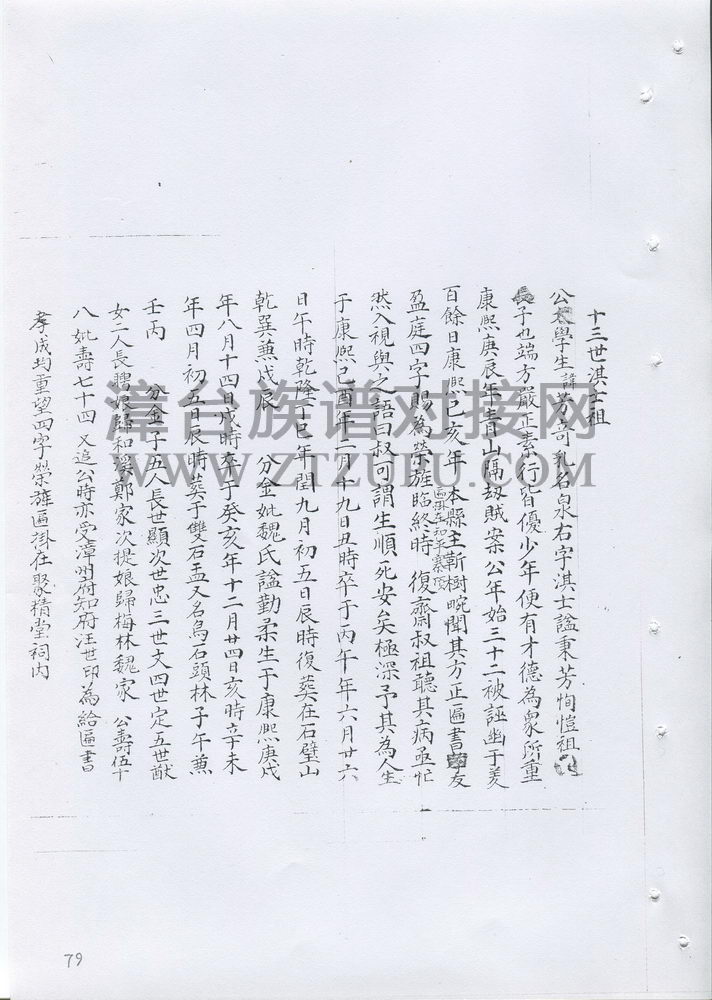 十三世淇士祖
公太學生諱芳奇乳名泉右字淇士謚秉芳恂愷祖
長子也端方嚴正素行皆優少年便有才德為眾所重
康熙庚辰年青山隔刼賊案公年始三十二被誣幽于羑
百餘日康熙己亥年本縣主靳樹畹聞其方正匾書友
匾掛在和平
盈庭四字賜為榮旌臨終時復齋叔祖聽其病亟忙
然入視與之語曰叔可謂生順死安矣極深予其為人生
于康熙己酉年二月十九日丑時卒于丙午年六月廿六
日午時乾隆丁巳年閏九月初五日辰時復葬在石壁山
乾巽兼戌辰 分金妣魏氏謚勤柔生于康熙庚戌
年八月十四日戌時卒于癸亥年十二月廿四日亥時辛未
年四月初五日辰時葬于雙石盂又名烏石頭林子午兼
壬丙 分金子五人長世顯次世忠三世文四世定五世猷
女二人長聘娘歸和溪鄭家次提娘歸梅林魏家 公壽伍十
八妣壽七十四又追公時亦受漳州府知府汪世印為給匾書
孝成均重望四字榮旌匾掛在聚精堂祠內
漳台族谱对接网
WWW.ZTZUPU.COM
79